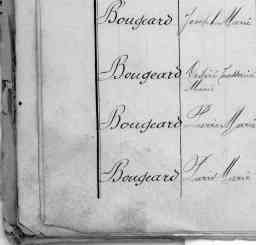 Bougeard Joseph Marie
Bougeard
Marie
Bougeard Pierre Marie
Bougeard Marie